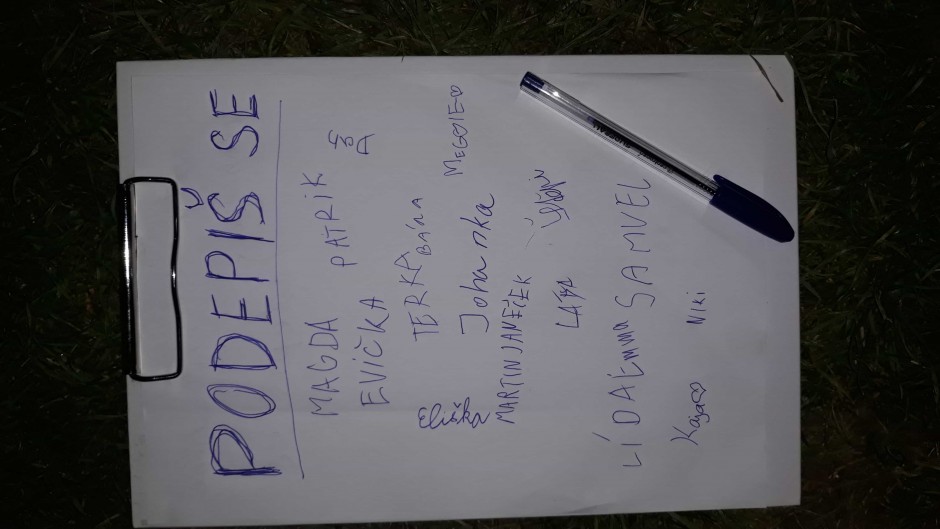 PODEPIŠ SE
MAGDA PATRIK
EVIČKA
TERKA BÁRA MEGGIE♡
Eliška Johanka
MARTIN JANEČEK
LÁĎA
LÍDA EMMA SAMUEL
Kája♡ Niki